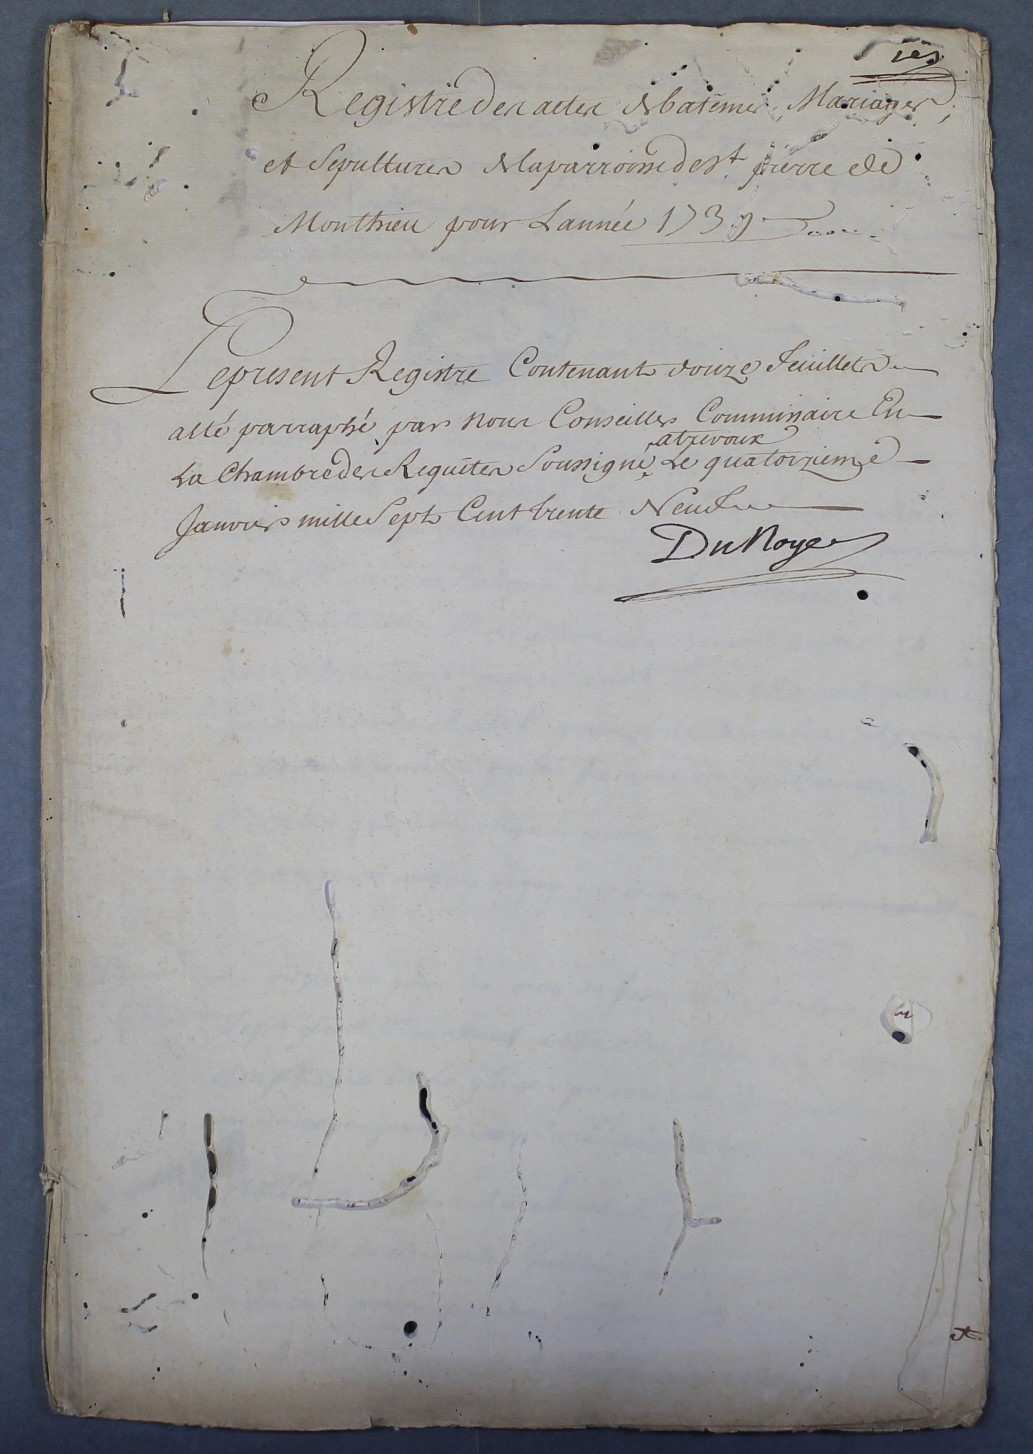 1er
Registre des actes de batême, Mariages,
et Sepultures de la parroisse de St pierre de
Monthieu pour L'année 1739
Le present Registre Contenant douze feuillets
a été parraphé par Nous Conseiller Commissaire En
atrevoux
La Chambre des Requêtes Soussigné, Le quatorzieme
Janvier mille Sept Cent trente Neuf
DuNoyer